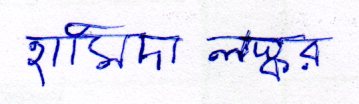 হামিদা লস্কর